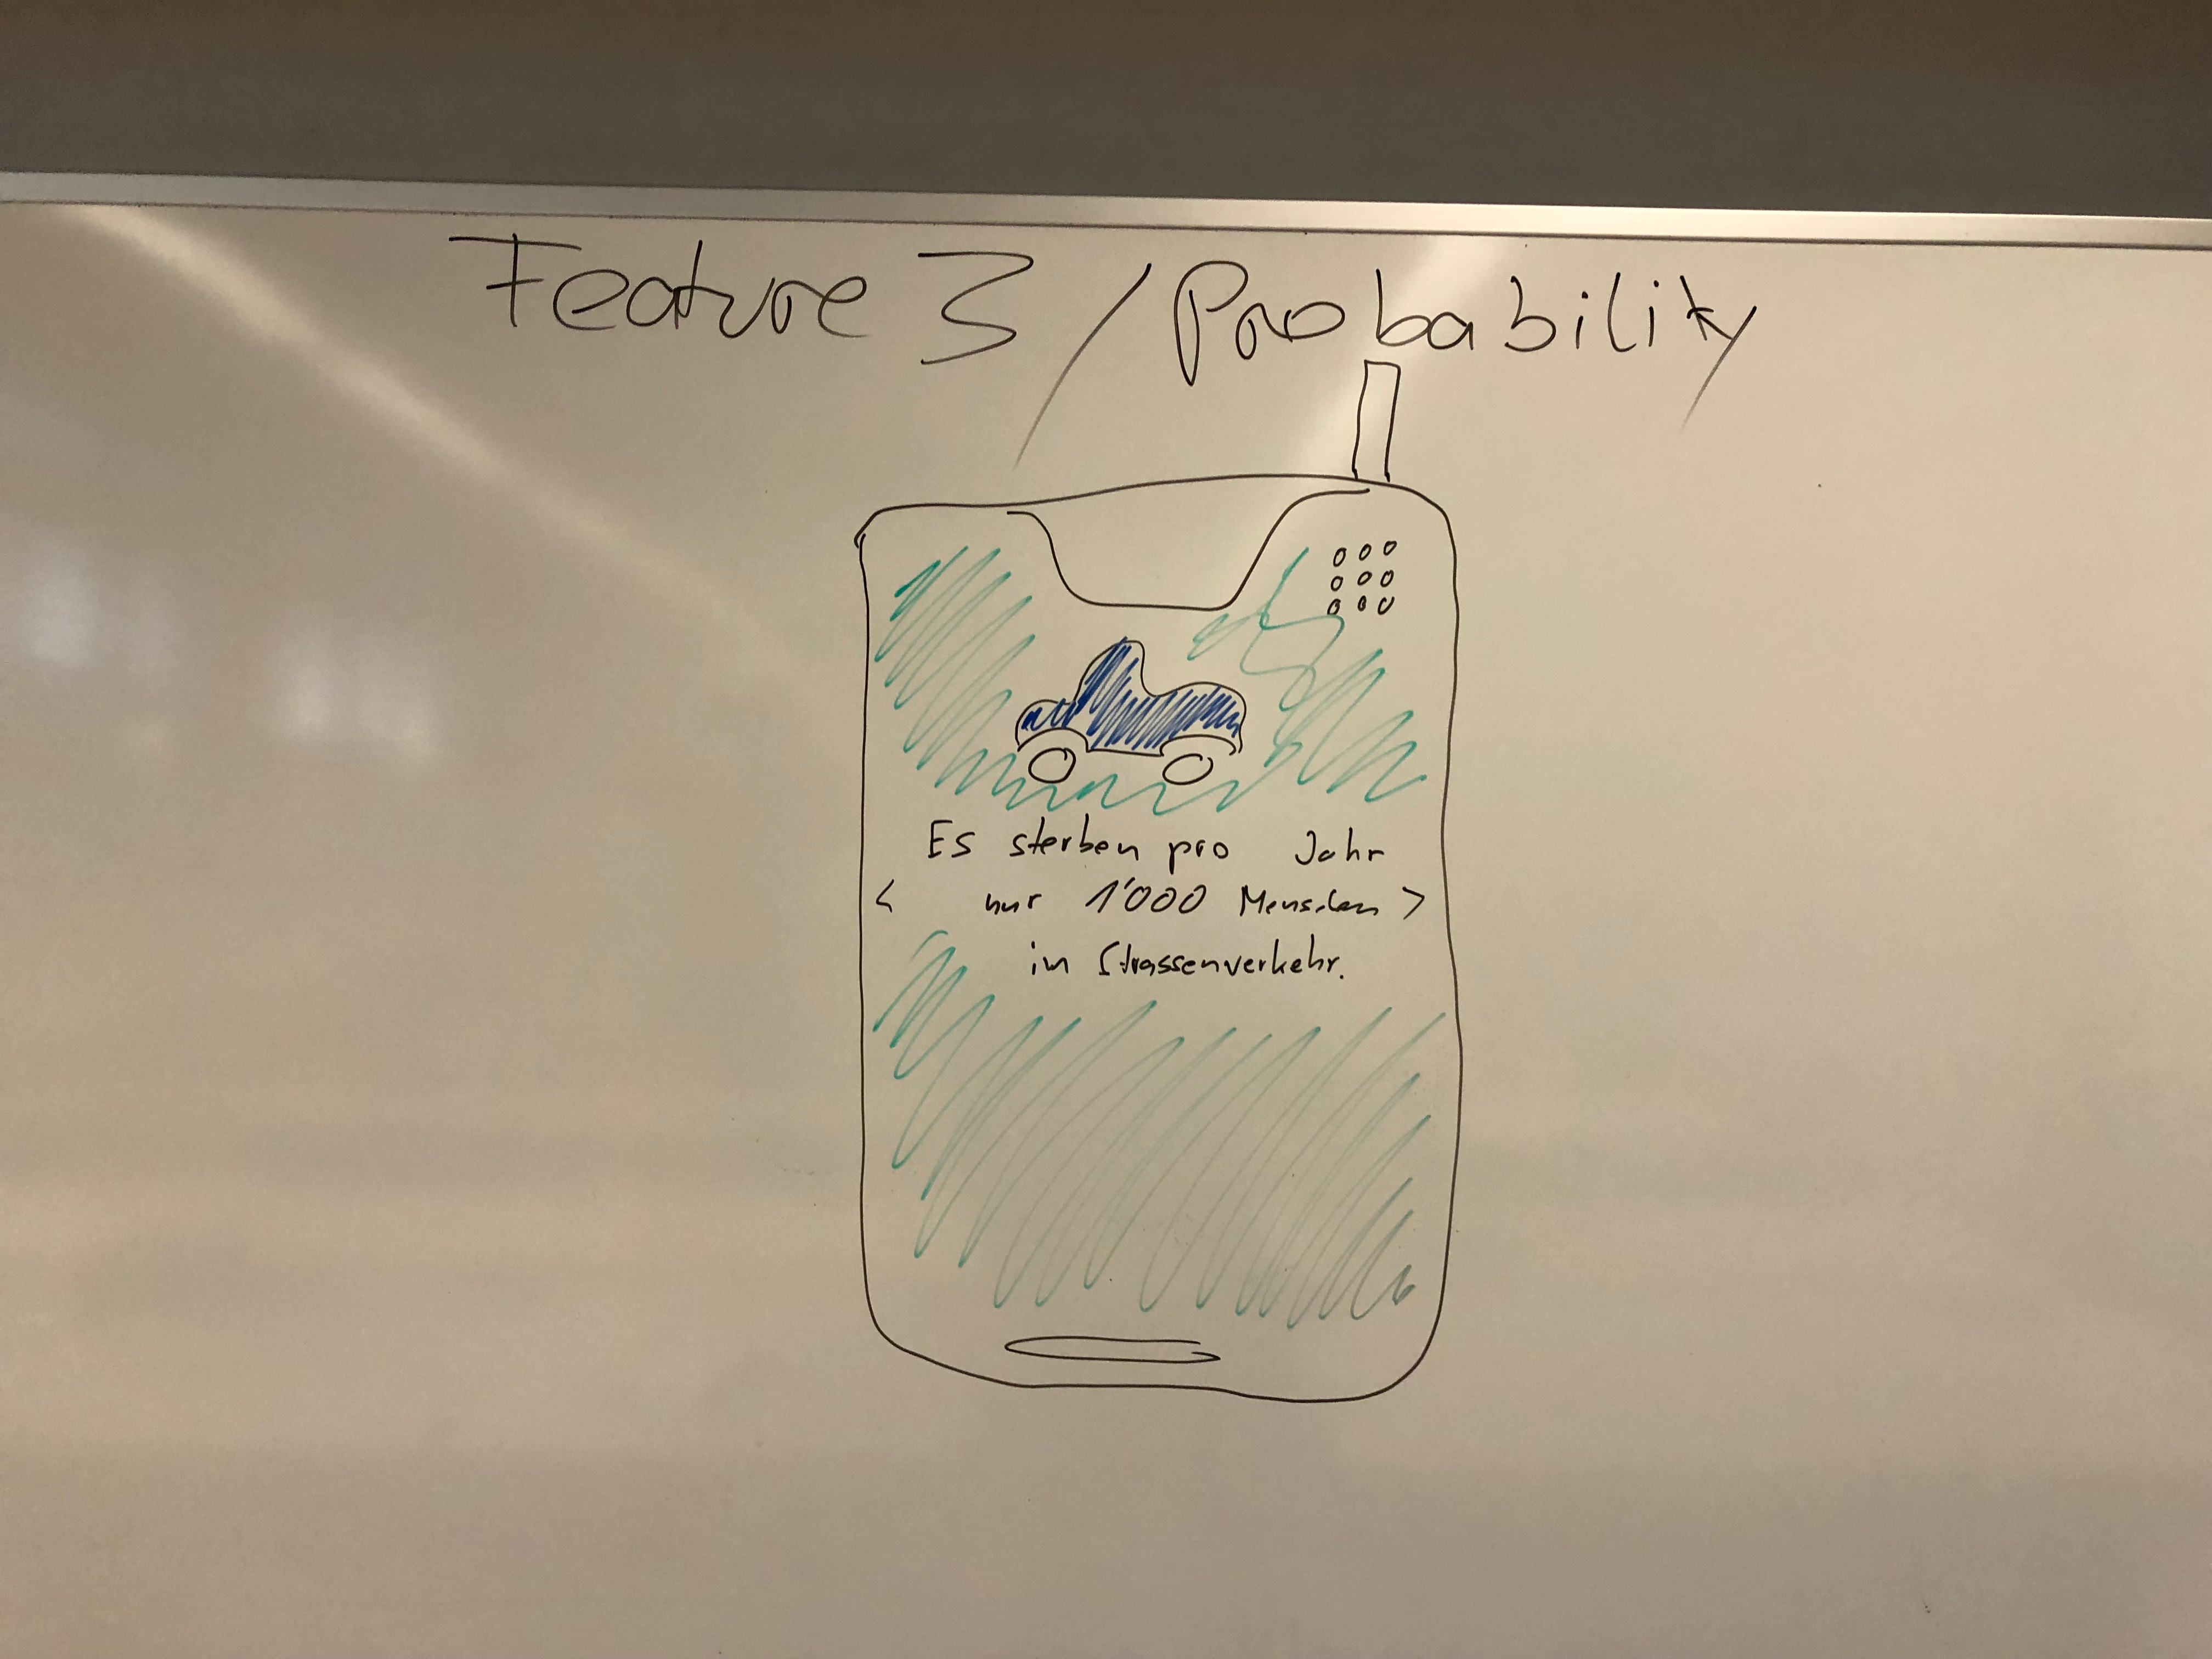 Feature 3 / Probability
Es sterben pro Jahr
< nur 1'000 Menschen >
im Strassenverkehr.